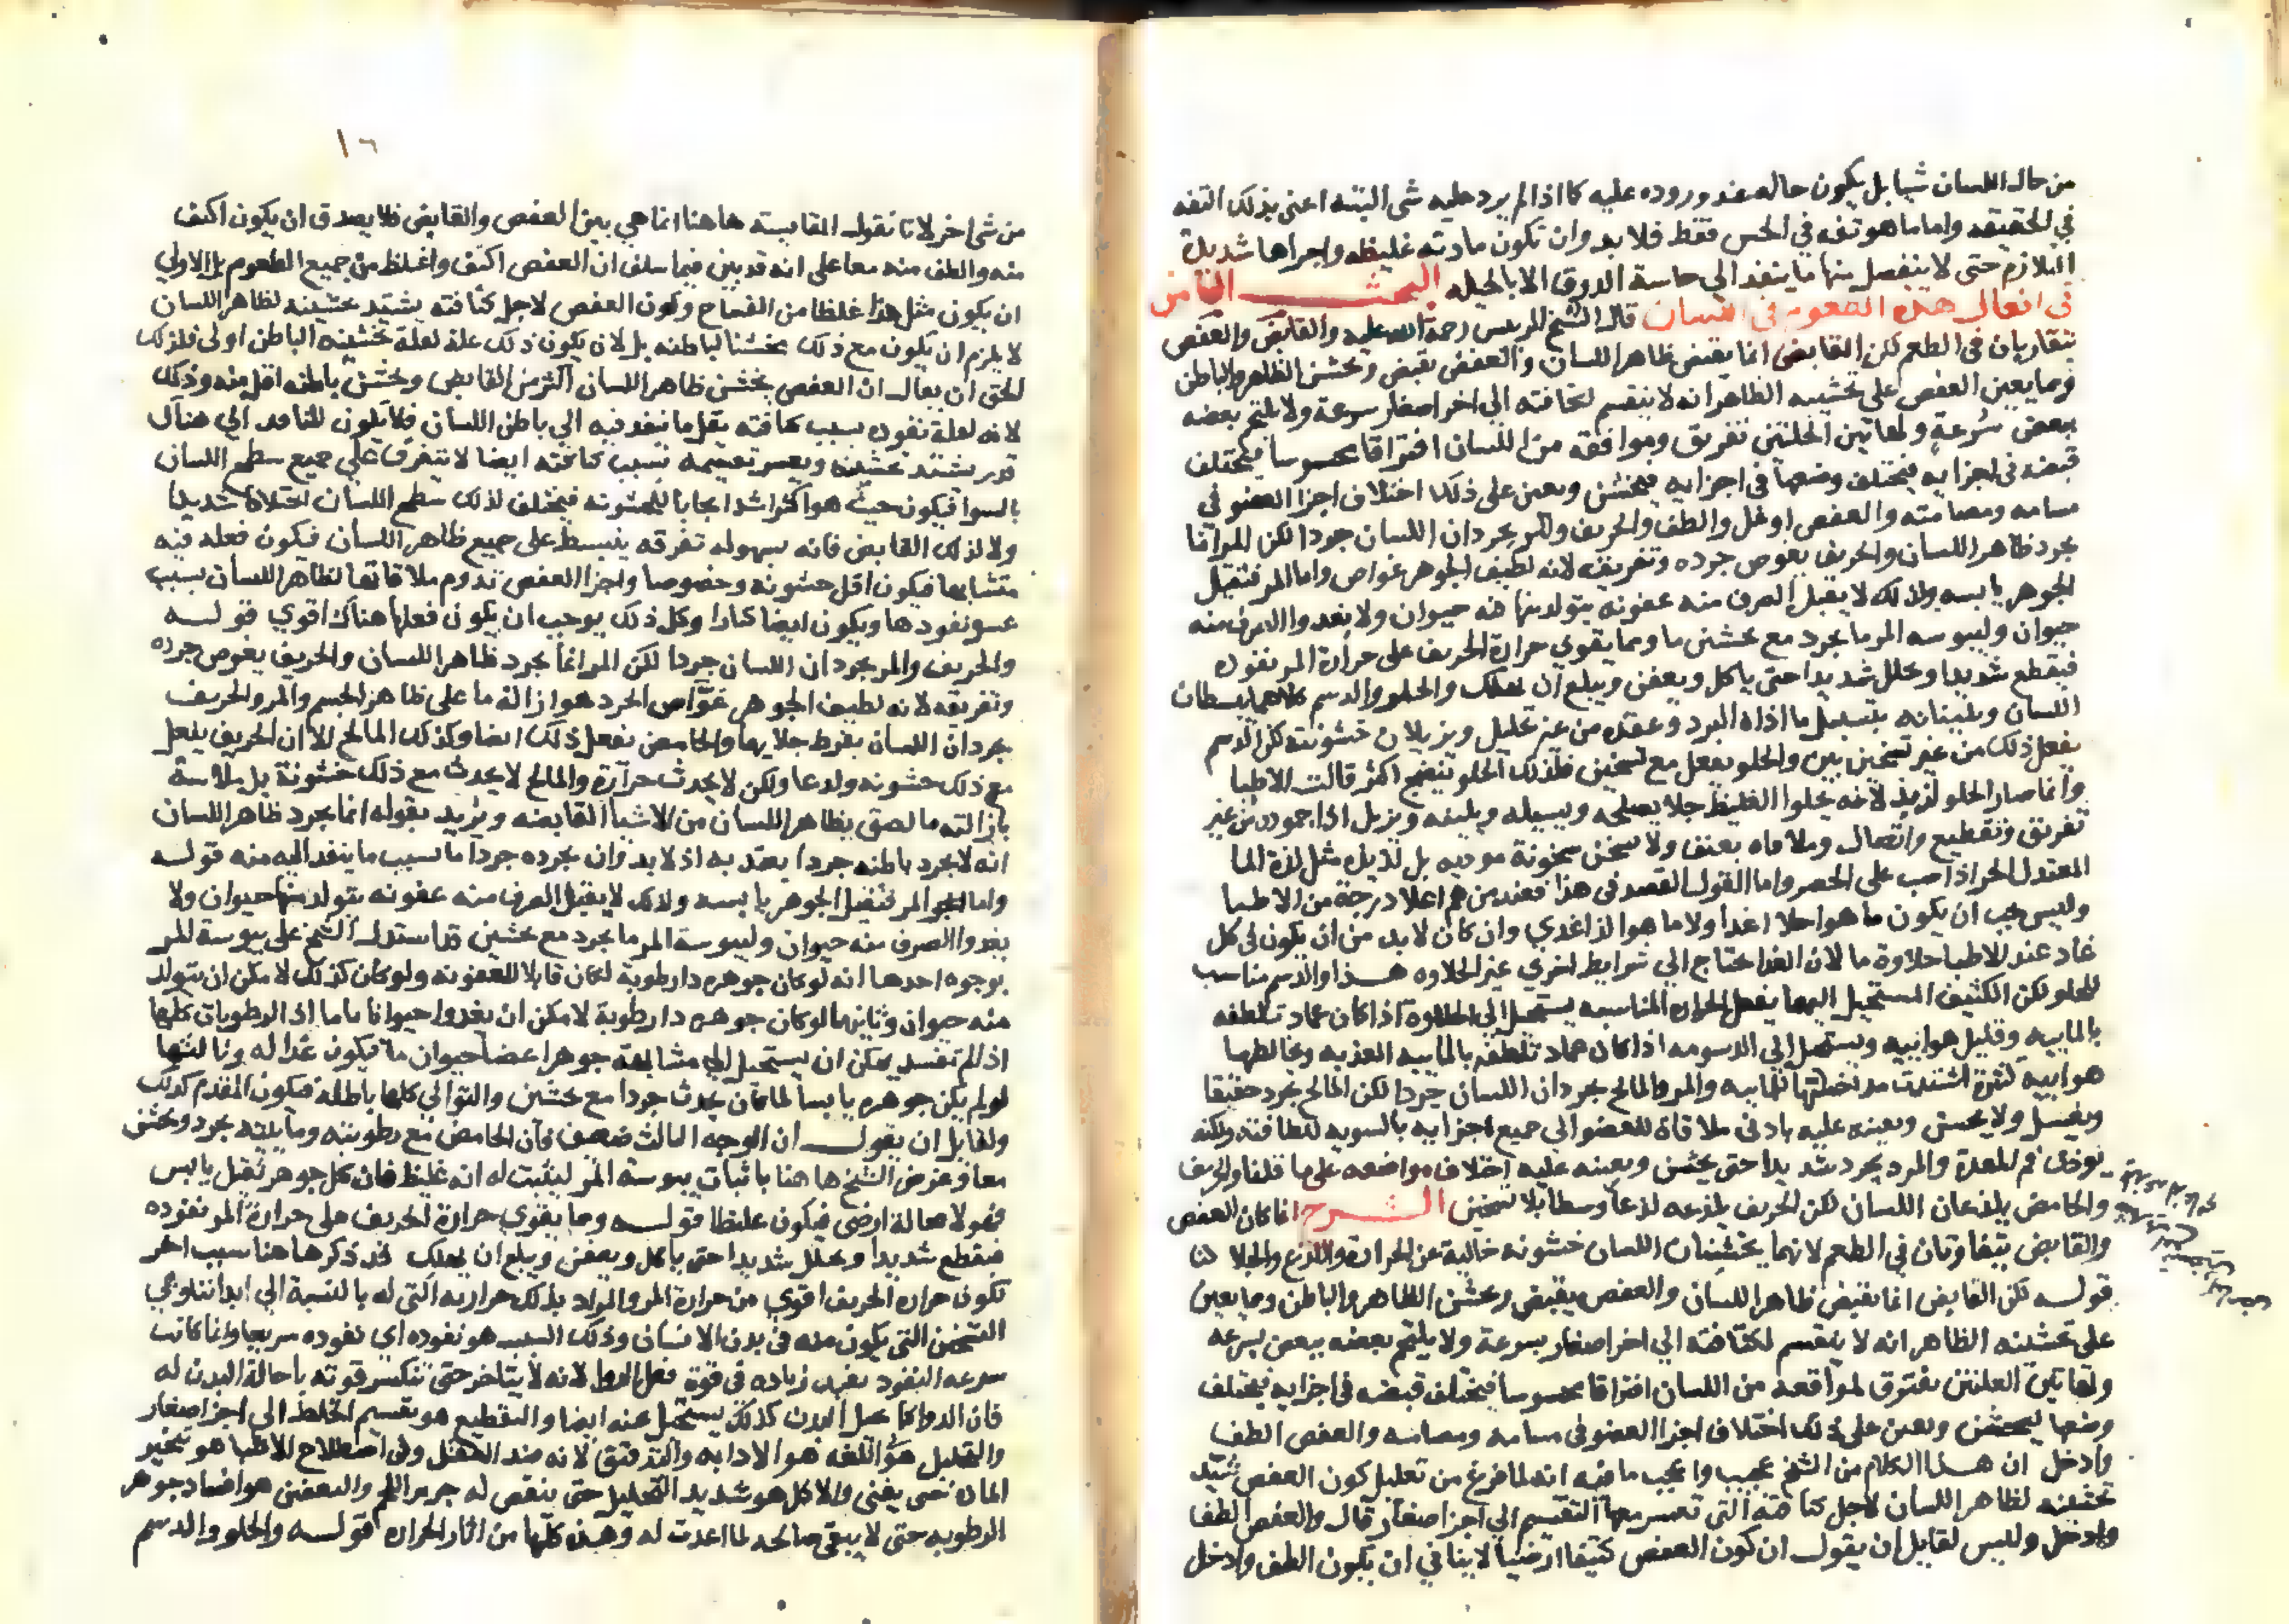 من حال اللسان شيا بل يكون حاله عند وروده عليه كما اذا لم يرد عليه شى البتة اعنى بذلك التفه
فى الحقيقه واما ما هو تفه في الحس فقط فلا بد وان تكون مادته غليظه واجزاها شديدة
التلازم حتى لا ينفصل منها ما ينفد الي حاسة الدوق الا بالحيله البحث الثامن
فى افعال هذه الطعوم فى اللسان قال الشيخ الريس رحمة الله عليه والقابض والعفص
تتقاربان فى الطعم لكن القابض انما يقبض ظاهر اللسان والعفص يقبض ويخشن الظاهر والباطن
ومما يعين العفص على تخشينه الظاهر انه لا ينقسم لكثافته الى اجزا صغار سرعة ولا يلتحم بعضه
ببعض سرعة ولهاتين الخلتين تفريق ومواقعه من اللسان افتراقا محسوسا فيختلف
قبضه فى اجزايه فيختلف وضعها فى اجزايه فيخشن ويعين على ذلك اختلاف اجزا العضو في
مسامه ومصامته والعفص اوغل والطف والحريف والمر يجردان اللسان جردا لكن المر انما
يجرد ظاهر اللسان والحريف يغوص جرده وتفريقه لانه لطيف الجوهر غواص واما المر فثقيل
الجوهر يابسه ولذلك لا يقبل الصرف منه عفونه يتولد منها فيه حيوان ولا يغدوا الصرف منه
حيوان وليبوسه المر ما يجرد مع تخشين ما ومما يقوي حرارة الحريف على حرارة المر نفوده
فيقطع شديدا ويحلل شديدا حتى ياكل ويعفن ويبلغ ان يهلك والحلو والدسم كلاهما يبسطان
اللسان ويلينانه بتسييل ما اذاه البرد وعقده من غير تحليل ويزيلان خشونته لكن الدسم
يفعل ذلك من غير تسخين بين والحلو يفعل مع تسخين فلذلك الحلو ينضج اكثر قالت الاطبا
وانما صار الحلو لذيذ لانه يجلوا الغليظ جلا يصلحه ويسيله ويلينه ويزيل اذا جموده من غير
تفريق وتقطيع واتصال وملاقاه بعنف ولا سخن سخونة موذيه بل لذيذه مثل لذة الما
المعتدل الحر اذا صب على الخصر واما القول الفصد فى هذا فعند من هم اعلا درجة من الاطبا
وليس يجب ان يكون ما هو احلا اغذا ولا ما هو الذ اغدي وان كان لا بد من ان يكون فى كل
غاد عند الاطبا حلاوة ما لان الغدا يحتاج الي شرايط اخري غير الحلاوه هذا والدسم مناسب
للحلو لكن الكثيف المستحيل اليهما بفعل الحراره المناسبه يستحيل الى الحلاوة اذا كان عماد تلطفه
بالماييه وقليل هواييه ويستحيل الي الدسومه اذا كان عماد تلطفه بالماييه العذبه ويخالطها
هواييه كثيرة اشتدت مداخلتها للماييه والمر والمالح يجردان اللسان جردا لكن المالح يجرد خفيفا
ويغسل ولا يخشن ويعينه عليه باد في ملاقاة للعضو الي جميع اجزايه بالسويه للطافته ولكنه
يوذى فم المعدة والمر يجرد شديدا حتى يخشن ويعينه عليه اختلاف مواضعه على ما قلنا والحريف
والحامض يلذعان اللسان لكن الحريف يلذعه لذعا وسطا بلا تسخين الشرح انما كان العفص
والقابض يتقاربان في الطعم لانهما يخشنان اللسان خشونه خالية عن الحرارة واللذع والجلا
قوله لكن القابض انما يقبض ظاهر اللسان والعفص يقبض ويخشن الظاهر والباطن ومما يعين
على تخشينه الظاهر انه لا ينقسم لكثافته الي اجزا صغار بسرعة ولا يلتحم بعضه ببعض بسرعه
ولهاتين العلتين يفترق لمواقعه من اللسان افتراقا محسوسا فيختلف قبضه فى اجزايه فيختلف
وضعها ليخشن ويعين على ذلك اختلاف اجزا العضو فى مسامه ومصامته والعفص الطف
وادخل ان هذا الكلام من الشيخ عجيب واعجب ما فيه انه لما فرغ من تعليل كون العفص يشتد
تخشينه لظاهر اللسان لاجل كثافته التى تعسر معها التقسيم الى اجزا صغار قال والعفص الطف
وادخل وليس لقايل ان يقول ان كون العفص كثيفا ارضيا لا ينافي ان يكون الطف وادخل
١٦
من شى اخر لانا نقول المقايسة هاهنا انما هي بين العفص والقابض فلا يصدق ان يكون اكثف
منه والطف منه معا على انه قد بين فيما سلف ان العفص اكثف واغلظ من جميع الطعوم بل الاولي
ان يكون مثل هذا غلظا من النساخ وكون العفص لاجل كثافته يشتد تخشينه لظاهر اللسان
لا يلزم ان يكون مع ذلك مخشنا لباطنه بل لان يكون ذلك علة لعلة تخشينه الباطن اولى فلذلك
الحق ان يقال ان العفص يخشن ظاهر اللسان اكثر من القابض ويخشن باطنه اقل منه وذلك
لانه لعلة نفوده بسبب كثافته يقل ما ينفد فيه الي باطن اللسان فلا يكون للنافد الي هناك
قدر يشتد تخشينه ويعسر تقسيمه بسبب كثافته ايضا لا يتفرق علي جميع سطح اللسان
بالسوا فيكون حيث هو اكثر اشد ايجابا للخشونه فيختلف لذلك سطح اللسان اختلافا شديدا
ولا لذلك القابض فانه بسهوله تفرقه ينبسط على جميع ظاهر اللسان فيكون فعله فيه
متشابها فيكون اقل خشونه وخصوصا واجزا العفص تدوم ملاقاتها لظاهر اللسان بسبب
عسر نفودها ويكون ايضا كبارا وكل ذلك يوجب ان يكون فعلها هناك اقوي قوله
والحريف والمر يجردان اللسان جردا لكن المر انما يجرد ظاهر اللسان والحريف يغوص جرده
وتفريقه لانه لطيف الجوهر غواص الجرد هو ازالة ما على ظاهر الجسم والمر والحريف
يجردان اللسان بفرط جلايهما والحامض يفعل ذلك ايضا وكذلك المالح الا ان الحريف يفعل
مع ذلك خشونه ولدعا ولكن لا يحدث حرارة والمالح لا يحدث مع ذلك خشونة بل ملاسة
بازالته ما لصق بظاهر اللسان من الاشيا القابضه ويريد بقوله انما يجرد ظاهر اللسان
انه لا يجرد باطنه جردا يعتد به اذ لا بد وان يجرده جردا ما بسبب ما ينفد اليه منه قوله
واما المر فثقيل الجوهر يابسه ولذلك لا يقبل الصرف منه عفونه يتولد منها حيوان ولا
يغدوا الصرف منه حيوان وليبوسة المر ما يجرد مع تخشين قد استدل الشيخ على يبوسة المر
بوجوه احدها انه لو كان جوهره دا رطوبة لكان قابلا للعفونه ولو كان كذلك لامكن ان يتولد
منه حيوان وثانيها لو كان جوهره دا رطوبة لامكن ان يغدوا حيوانا ما اذ الرطوبات كلها
اذ لم تفسد يمكن ان يستحيل الي مشابهة جوهر اعضا حيوان ما فيكون غدا له وثالثها
لو لم يكن جوهره يابسا لما كان يحدث جردا مع تخشين والتوالي كلها باطلة فيكون المقدم كذلك
ولقايل ان يقول ان الوجه الثالث ضعيف فان الحامض مع رطوبته ومائيته يجرد ويخشن
معا وغرض الشيخ هاهنا باثبات يبوسة المر ليثبت له انه غليظ فان كل جوهر ثقيل يابس
فهو لا محالة ارضى فيكون غليظا قوله ومما يقوي حرارة الحريف على حرارة المر نفوده
فيقطع شديدا ويحلل شديدا حتى ياكل ويعفن ويبلغ ان يهلك قد ذكر هاهنا سبب اخر
لكون حراره الحريف اقوي من حرارة المر والمراد بذلك حرارته التى له بالنسبة الي ابداننا وهي
التسخين التى يكون منه في بدن الانسان وذلك السبب هو نفوده اي نفوده سريعا وانما كانت
سرعه النفود يفيد زياده فى قوة فعل الدوا لانه لا يتاخر حتى تنكسر قوته باحالة البدن له
فان الدوا كما يحيل البدن كذلك يستحيل عنه ايضا والتقطيع هو تقسيم الخلط الى اجزا صغار
والتحليل هو فى اللغه هو الاذابه والترقيق لانه ضد العقد وفى اصطلاح الاطبا هو تبخير
المادة حتى يفنى والاكل هو شديد التحليل حتى ينقص له جرم اللحم والتعفين هو افساد جوهر
الرطوبه حتى لا يبقى صالحه لما اعدت له وهذه كلها من اثار الحراره قوله والحلو والدسم